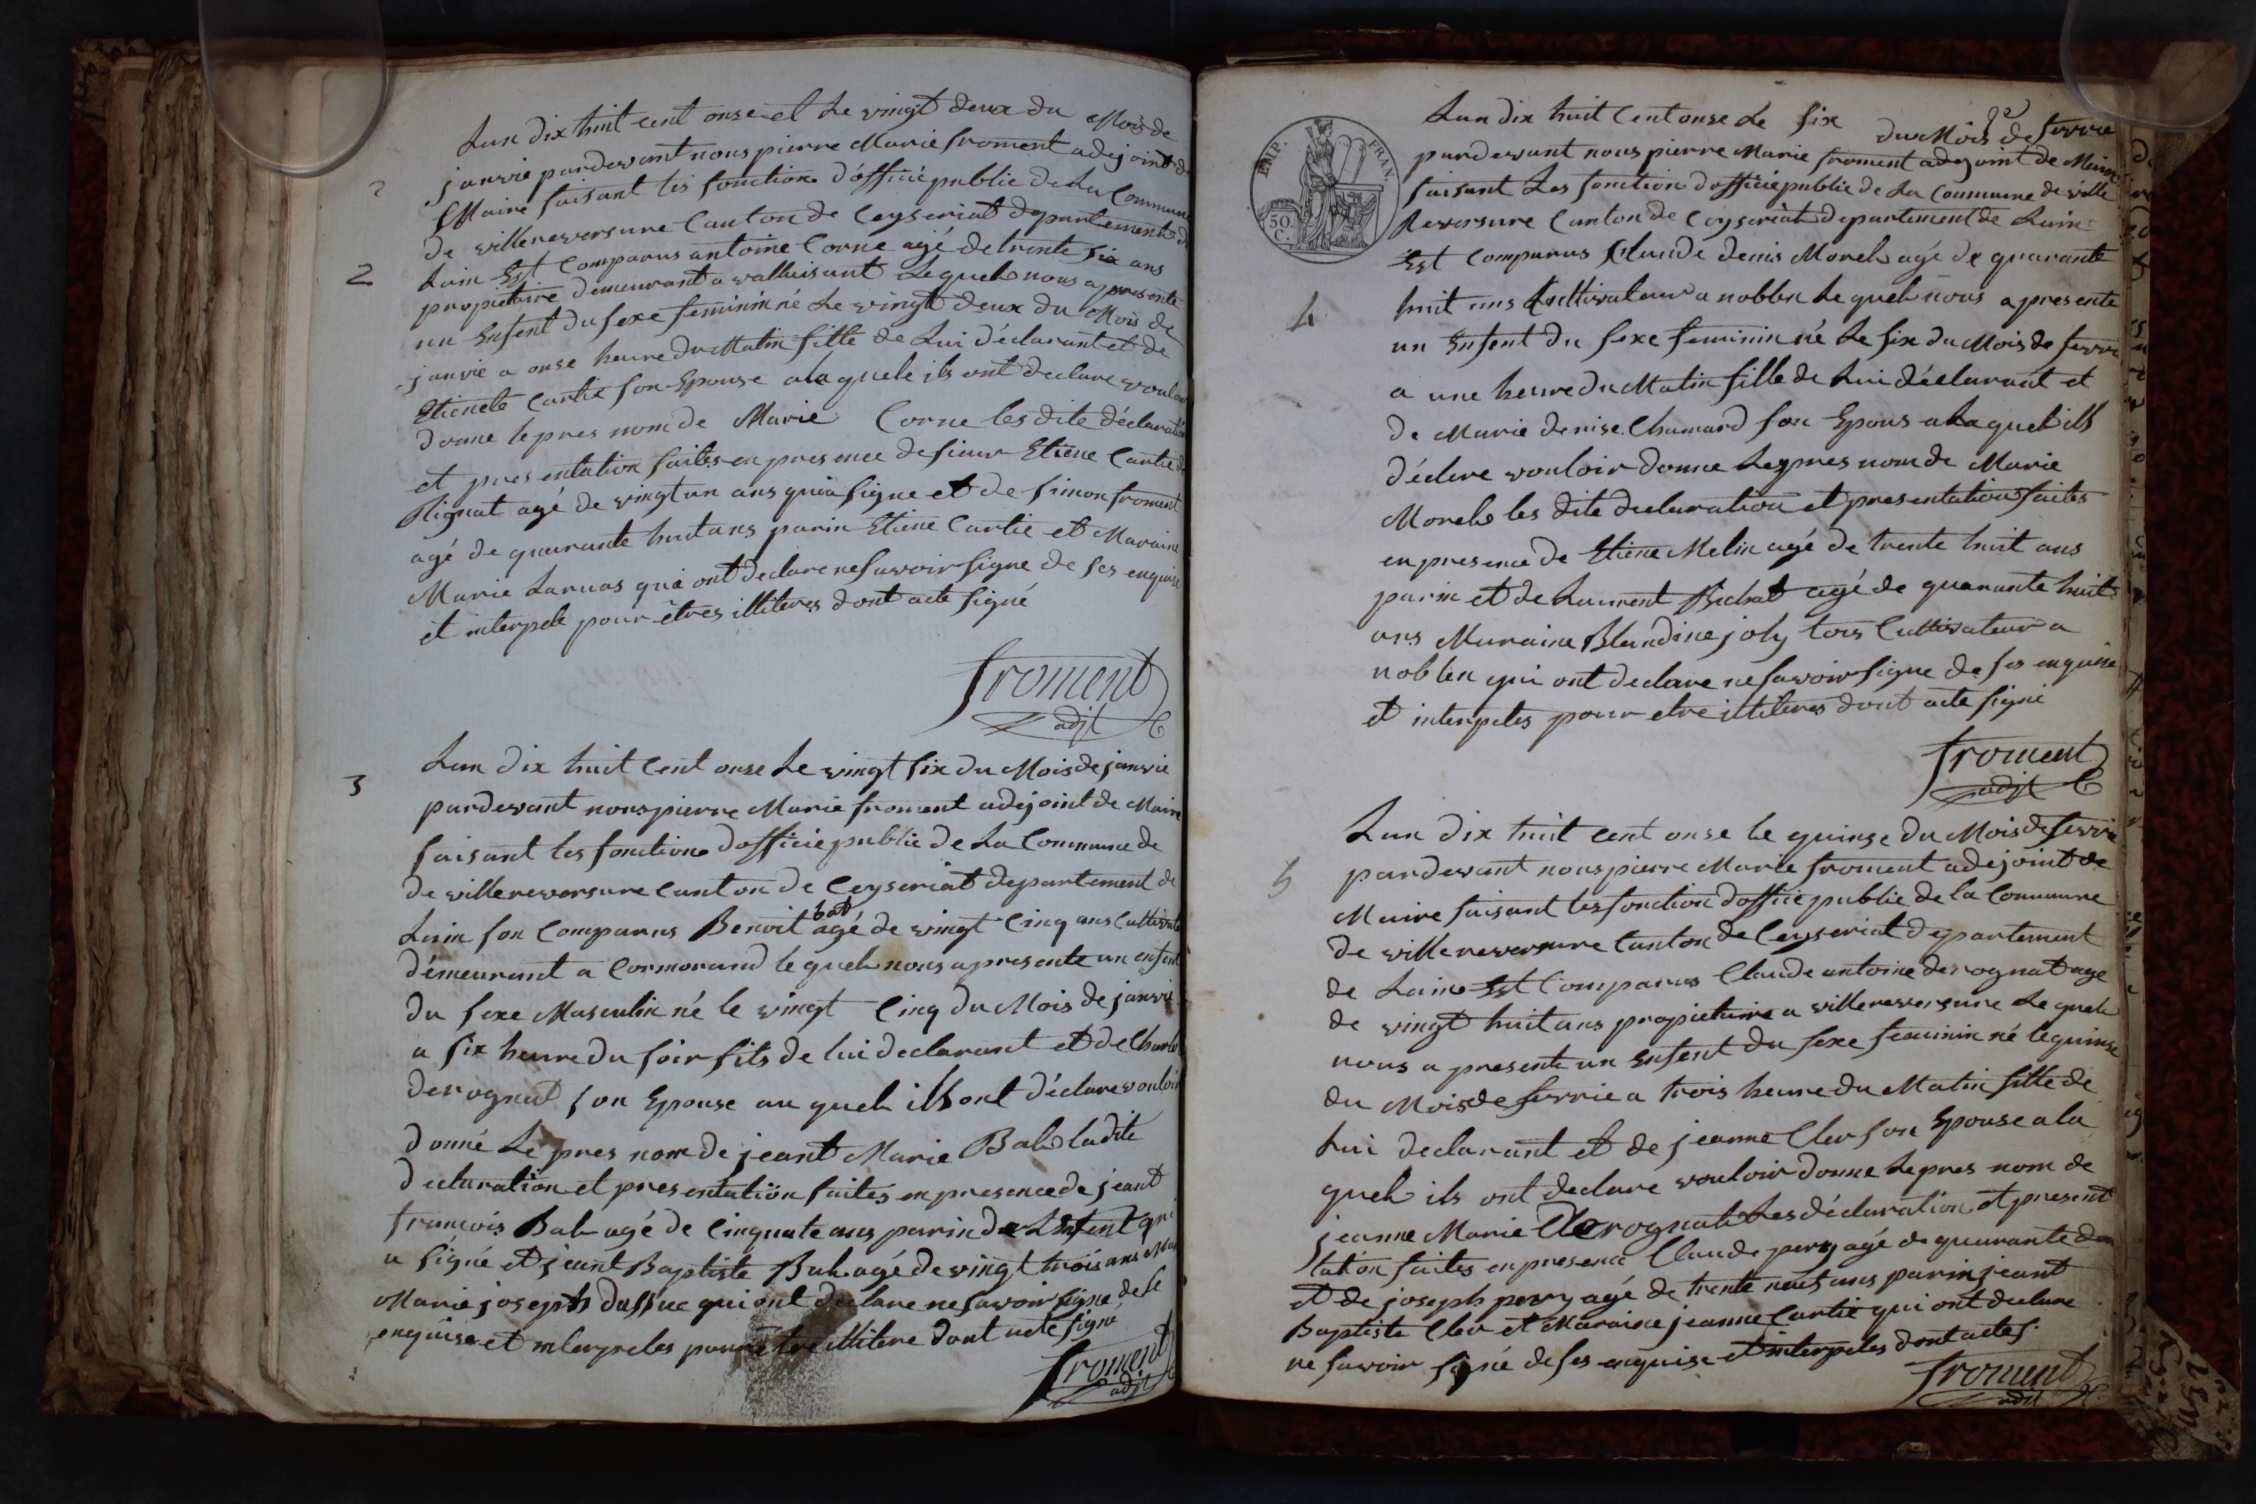 Lan dix huit cent onse et Le vingt deux du Mois de
janvie pardevant nous pierre Marie froment adejoint de
Maire faisant les fonction d'officié public de La Commune
de villereversure Canton de Ceyseriat departement de
2
Lain Est Comparus antoine Corne agé de trente six ans
propietaire demeurant a valluisant Lequel nous a presente
un Enfent du sexe feminin né Le vingt deux du Mois de
janvie a onse heure du Matin fille de Lui déclarant et de
Etienete Cartie son Epouse a la quele ils ont declare vouloir
donne le pres nom de Marie Corne les dite déclaration
et presentation faites en presence de sieur Etiene Cartie de
Rignat agé de vingt un ans qui a signe et de simon froment
agé de quarante huit ans parin Etiene Cartie et Maraine
Marie Laruas qui ont declare ne savoir signe de ses enquise
et interpele pour êtres illiteres dont acte signé
froment
adjt
3
Lan dix huit Cent onse Le vingt six du Mois de janvie
pardevant nous pierre Marie froment adejoint de Maire
faisant les fonction d'officie public de La Commune de
de villereversure Canton de Ceyseriat departement de
Lain son Comparus Benoit bal agé de vingt Cinq ans Cultivate
démeurant a Cormorand le quel nous a presente un enfent
du sexe Masculin né le vingt Cinq du Mois de janvie
a six heure du soir fils de lui declarant et de Charlo
derognat son Epouse au quel ills ont déclare vouloir
donné Le pres nom de jeant Marie Bal ladite
declaration et presentation faites en presence de jeant
francois Bal agé de Cinquate ans parin de Lenfent qui
a signé et jeant Baptiste Bal agé de vingt trois ans Mar
Marie joseph dassue qui ont declare ne savoir signe de se
enquise et interpeles pour etre illitere dont acte signé
froment
adjt
EMP. FRAN.
50 C.
Lan dix huit Cent onse Le six du Mois de fevrie
pardevant nous pierre Marie froment adejoint de Maire
faisant Les fonction d'officié public de La Commune de ville
Reversure Canton de Ceyseriat departement de Lain
Est Comparus Claude denis Morel agé de quarante
4
huit ans Cultivateur a noblen Le quel nous a presente
un Enfent du sexe feminin né Le six du Mois de fevri
a une heure du Matin fille de Lui déclarant et
de Marie denise Chamard son Epous a La quel ills
déclare vouloir donne Le pres nom de Marie
Morel les dite declaration et presentation faites
en presence de Etiene Melin agé de trente huit ans
parin et de Laurent Bichat agé de quarante huit
ans Maraine Blandine joly tous Cultivateur a
noblen qui ont declare ne savoir signe de ses enquise
et interpeles pour etre illiteres dont acte signé
froment
adjt
Lan dix huit cent onse le quinse du Mois de fevrie
5
pardevant nous pierre Marie froment adejoint de
Maire faisant les fonction d'officie public de la Commune
de villereversure Canton de Ceyseriat departement
de Lain Est Comparus Claude antoine derognat age
de vingt huit ans propietaire a villereversure Le quel
nous a presente un Enfent du sexe feminin né le quinse
du Mois de fevrie a trois heure du Matin fille de
Lui declarant et de jeanne Cler son Epouse a la
quel ils ont declare vouloir donne Le pres nom de
jeanne Marie derognat Les déclaration et present
tation faites en presence Claude pery agé de quarante deu
et de joseph pery agé de trente neuf ans parin jeant
Baptiste Cler et Maraine jeanne Cartie qui ont declare
ne savoir signé de ses enquise et interpeles dont acte s.
froment
adjt